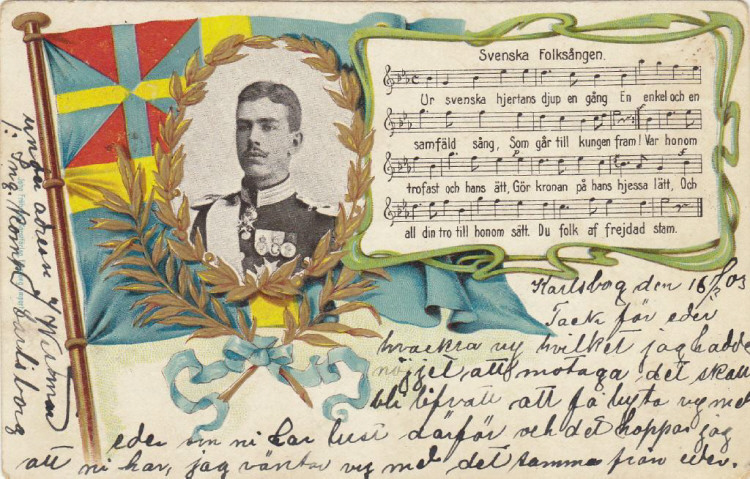 Svenska Folksången.
Ur svenska hjertans djup en gång En enkel och en
samfäld sång, Som går till kungen fram! Var honom
trofast och hans ätt, Gör kronan på hans hjessa lätt, Och
all din tro till honom sätt. Du folk af frejdad stam.
Karlsborg den 16/ 03
Tack för eder
vackra vy hvilket jag hadde
nöjet att motaga det skall
bli lifvatt att få byta vy med
eder om ni har lust därför och det hoppas jag
att ni har, jag väntar vy med det samma från eder.
adress
Ing. Komp. Karlsborg